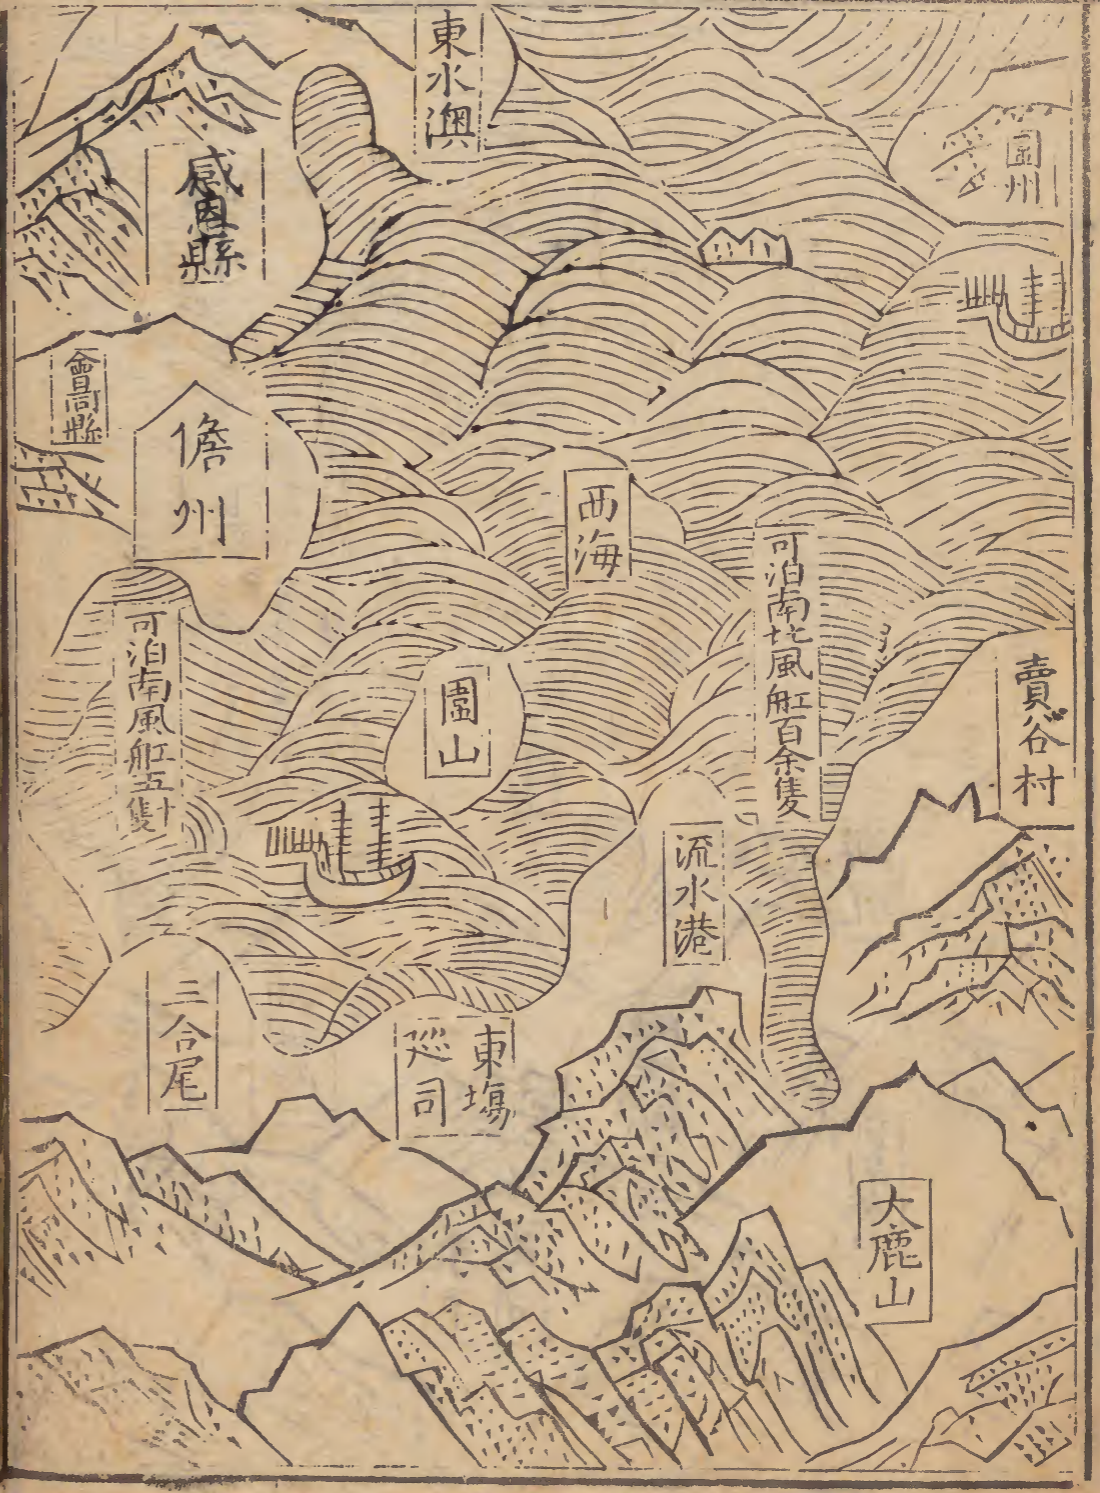 東水澳
圍州
感恩縣
會同縣
儋州
西海
可泊南北風舡百余隻
賣谷村
可泊南風舡五十隻
圍山
流水港
三合尾
東塲
廵司
大鹿山